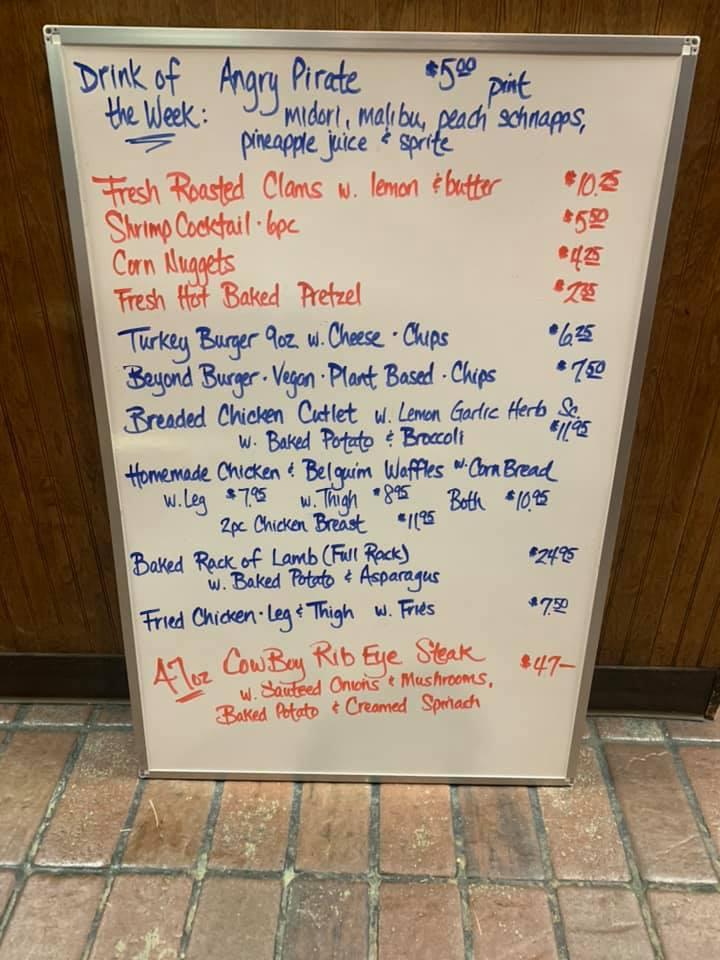 Drink of Angry Pirate $5.00 pint
the Week: midori, malibu, peach schnapps,
pineapple juice & sprite
Fresh Roasted Clams w. lemon & butter $10.25
Shrimp Cocktail · 6pc $5.50
Corn Nuggets $4.25
Fresh Hot Baked Pretzel
Turkey Burger 9oz w. Cheese · Chips $6.25
Beyond Burger · Vegan · Plant Based · Chips $7.50
Breaded Chicken Cutlet w. Lemon Garlic Herb Sc.
w. Baked Potato & Broccoli $11.95
Homemade Chicken & Belguim Waffles w. Corn Bread
w. Leg $7.95 w. Thigh $8.95 Both $10.95
2pc Chicken Breast $11.95
Baked Rack of Lamb (Full Rack) $24.95
w. Baked Potato & Asparagus
Fried Chicken · Leg & Thigh w. Fries $7.50
47oz CowBoy Rib Eye Steak $47-
w. Sauteed Onions & Mushrooms,
Baked Potato & Creamed Spinach